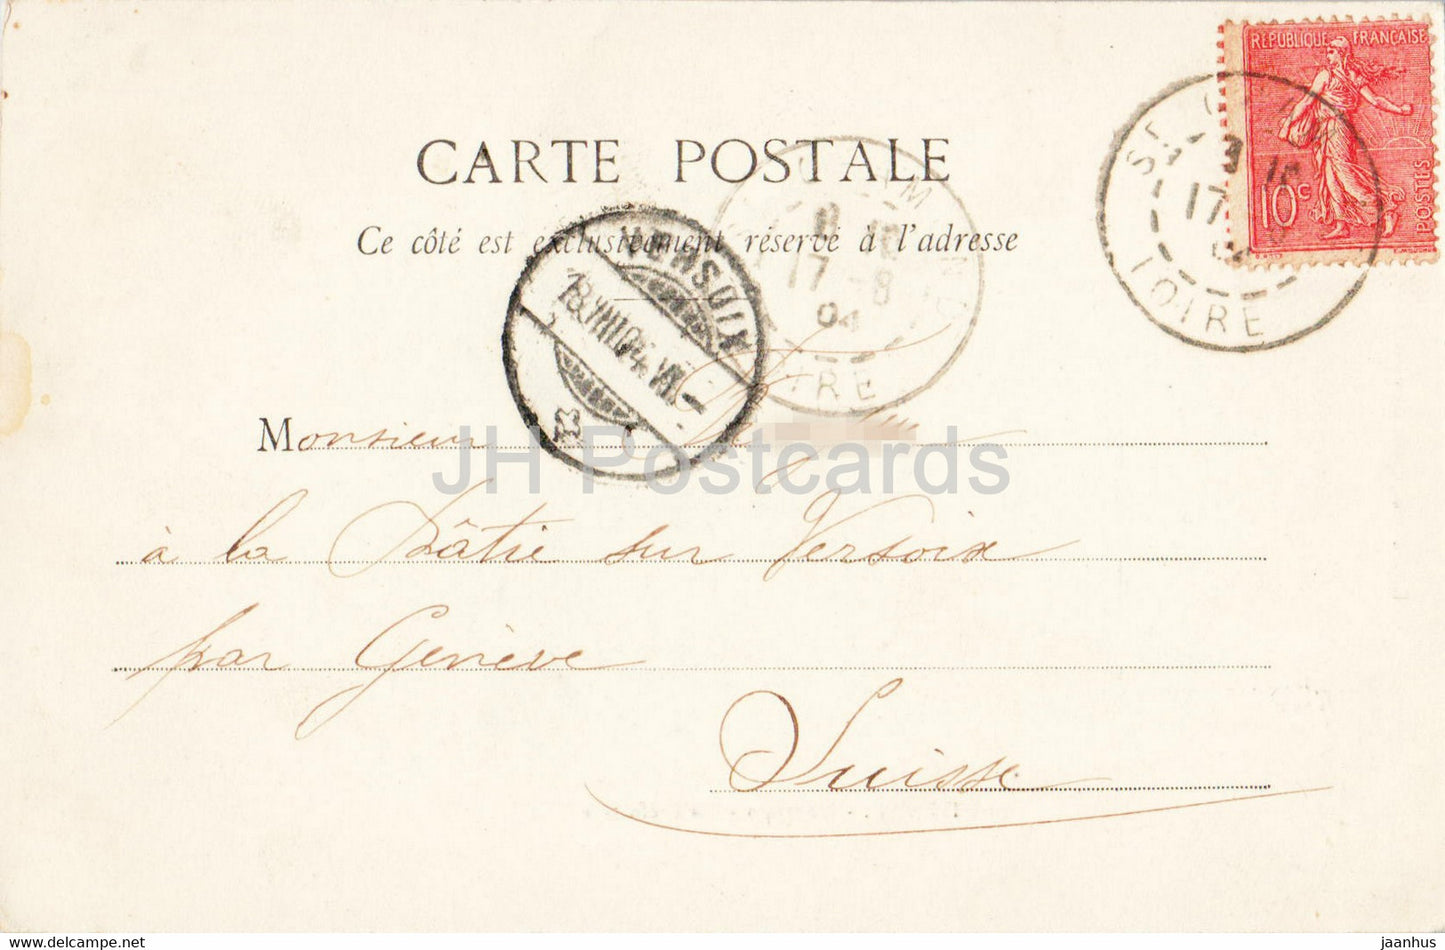 RÉPUBLIQUE FRANÇAISE
10c
POSTES
CARTE POSTALE
Ce côté est exclusivement réservé à l'adresse
3
17
LOIRE
17 -8
04
LOIRE
VERSOIX
18.VIII.04. VII -
Monsieur
JH Postcards
à la Bâtie sur Versoix
par Genève
Suisse
jaanhus